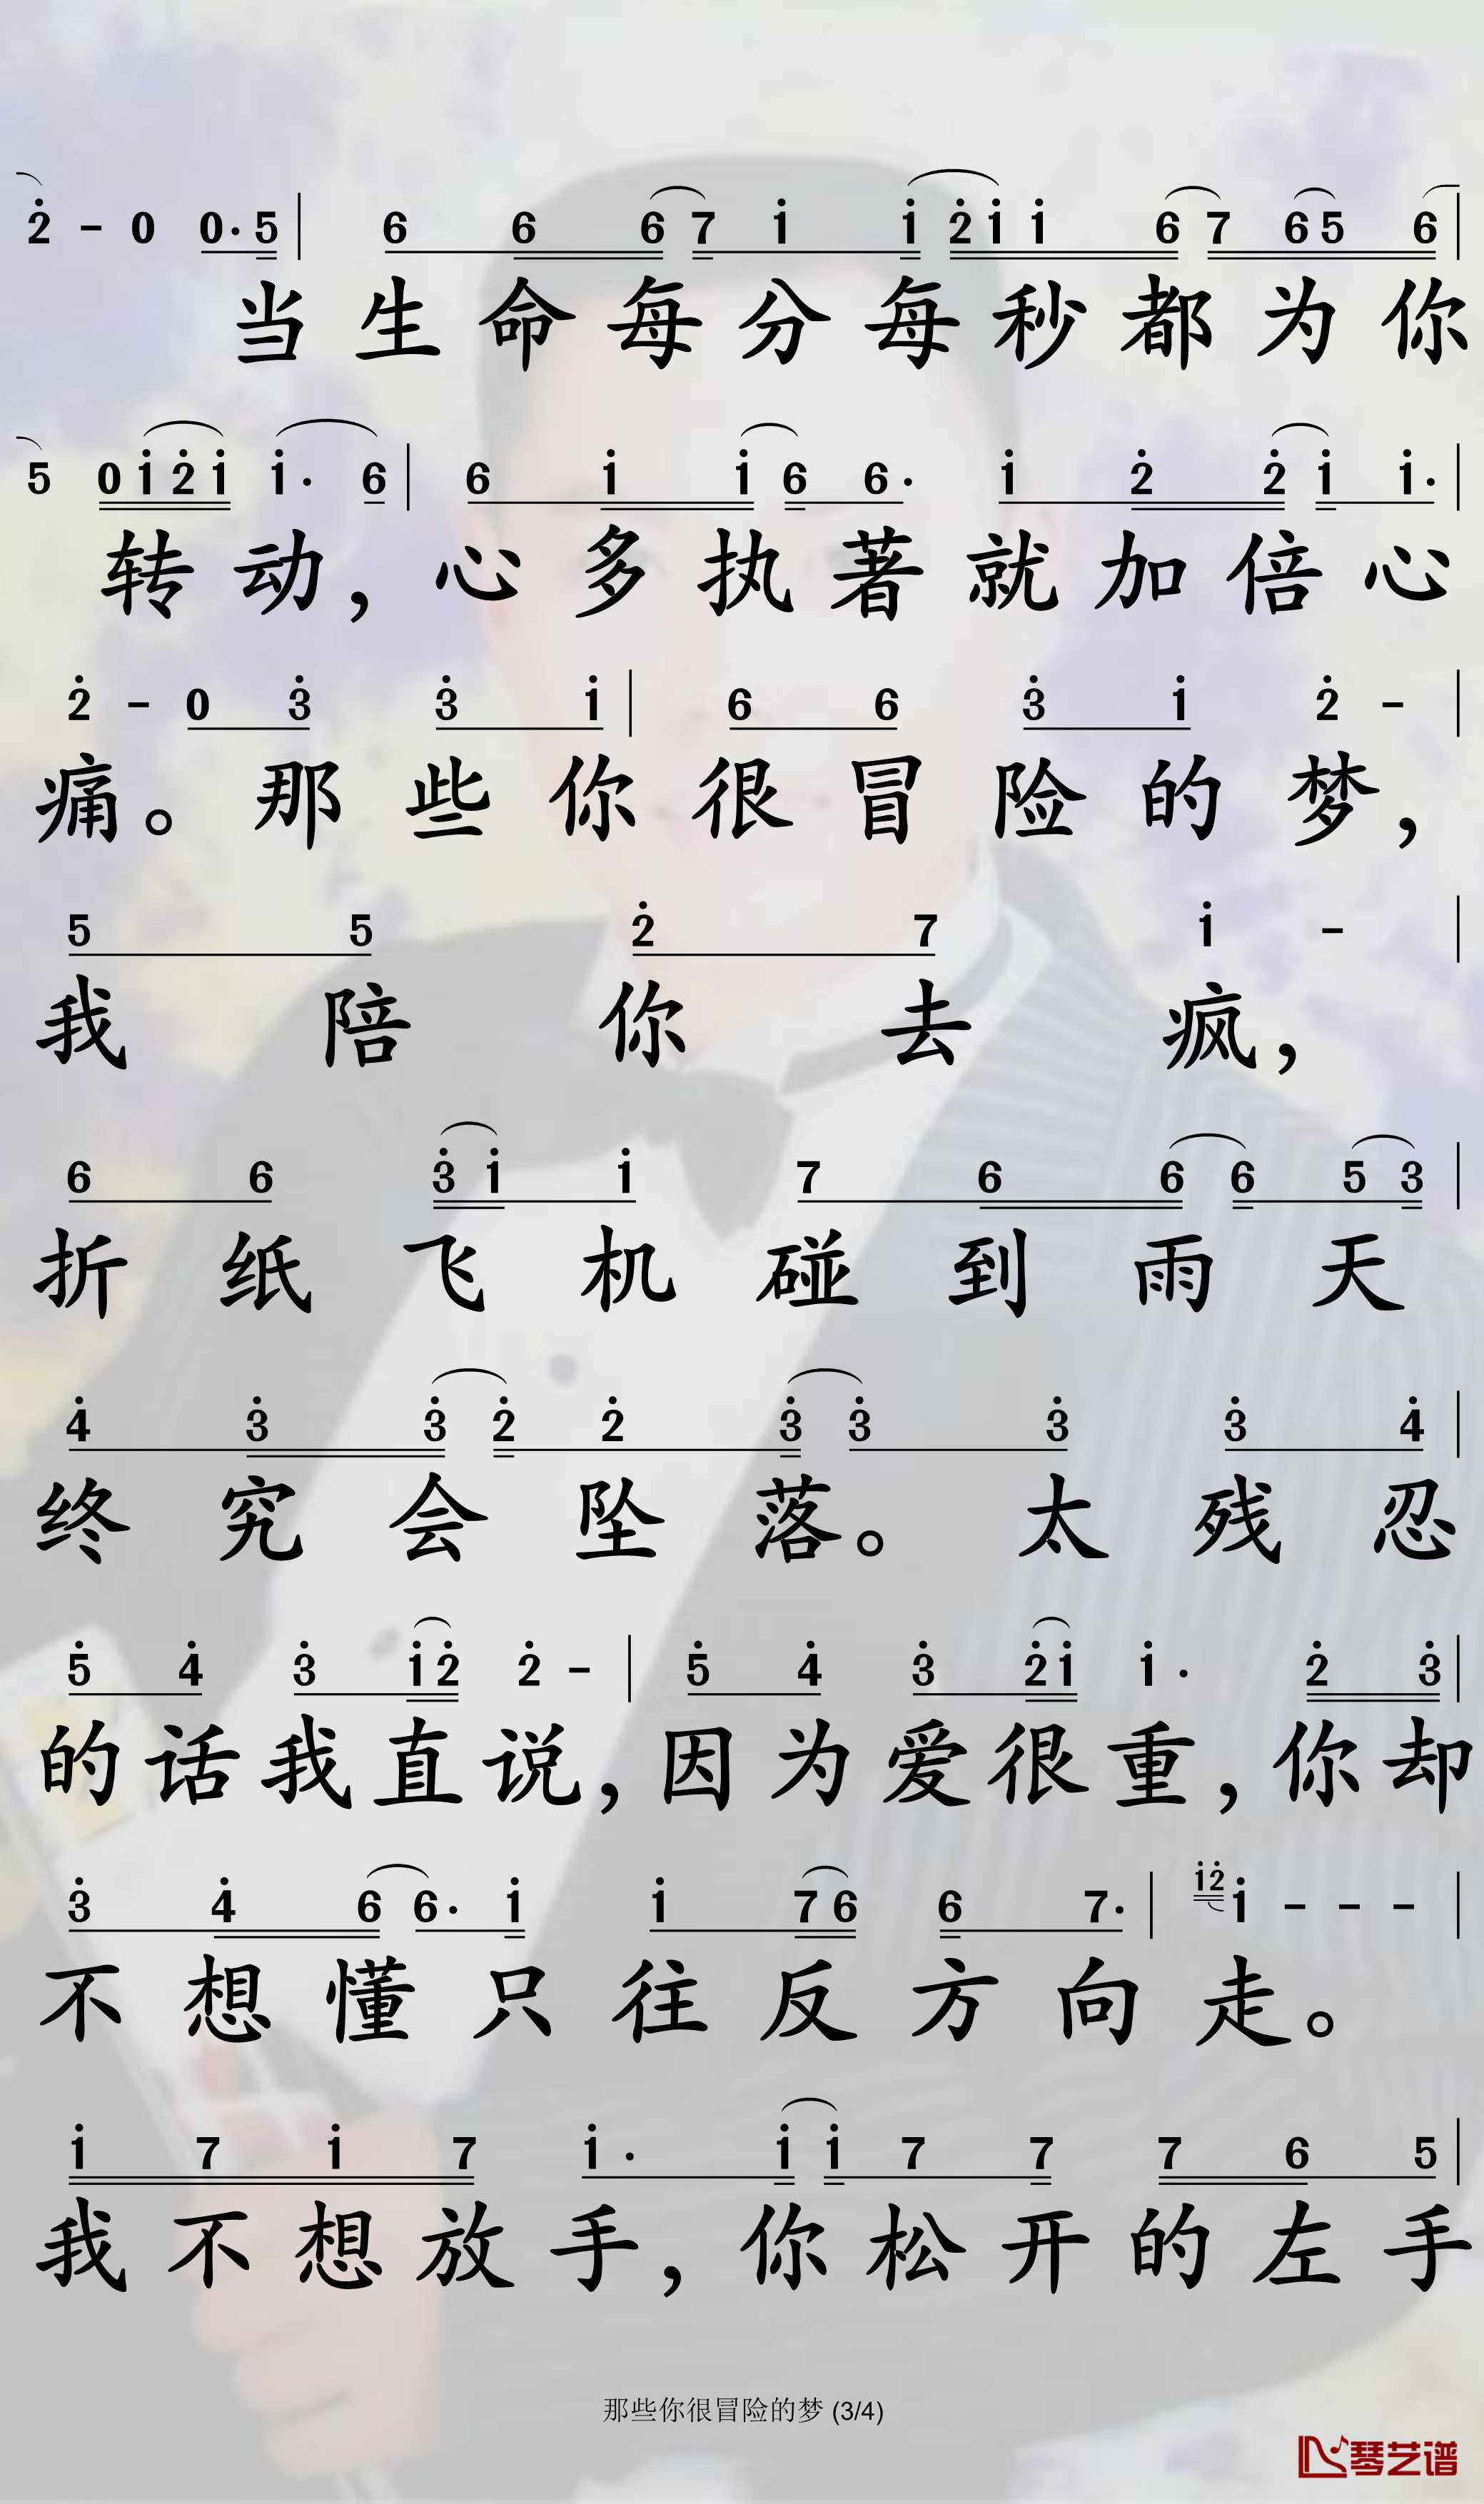 2̇ - 0 0· 5 | 6 6 6 7 1̇ 1̇ 2̇ 1̇ 1̇ 6 7 6 5 6 |
当生命每分每秒都为你
5 0 1̇ 2̇ 1̇ 1̇· 6 | 6 1̇ 1̇ 6 6· 1̇ 2̇ 2̇ 1̇ 1̇· |
转动，心多执著就加倍心
2̇ - 0 3̇ 3̇ 1̇ | 6 6 3̇ 1̇ 2̇ - |
痛。那些你很冒险的梦，
5 5 2̇ 7 1̇ - |
我陪你去疯，
6 6 3̇ 1̇ 1̇ 7 6 6 6 5 3 |
折纸飞机碰到雨天
4̇ 3̇ 3̇ 2̇ 2̇ 3̇ 3̇ 3̇ 3̇ 4̇ |
终究会坠落。太残忍
5̇ 4̇ 3̇ 1̇ 2̇ 2̇ - | 5̇ 4̇ 3̇ 2̇ 1̇ 1̇· 2̇ 3̇ |
的话我直说，因为爱很重，你却
3̇ 4̇ 6 6· 1̇ 1̇ 7 6 6 7· | 1̇ 2̇ 1̇ - - - |
不想懂只往反方向走。
1̇ 7 1̇ 7 1̇· 1̇ 1̇ 7 7 7 6 5 |
我不想放手，你松开的左手
那些你很冒险的梦 (3/4)
琴艺谱